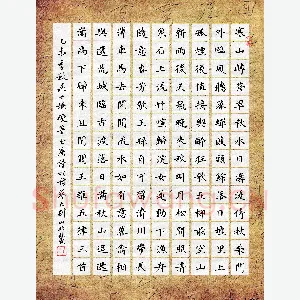 寒山轉蒼翠秋水日潺湲倚杖柴門
外臨風聽暮蟬渡頭餘落日墟里上
孤煙復值接輿醉狂歌五柳前空山
新雨後天氣晚來秋明月松間照清
泉石上流竹喧歸浣女蓮動下漁舟
隨意春芳歇王孫自可留清川帶長
薄車馬去閑閑流水如有意暮禽相
與還荒城臨古渡落日滿秋山迢遞
嵩高下歸來且閉關王維五律三首
乙未季秋